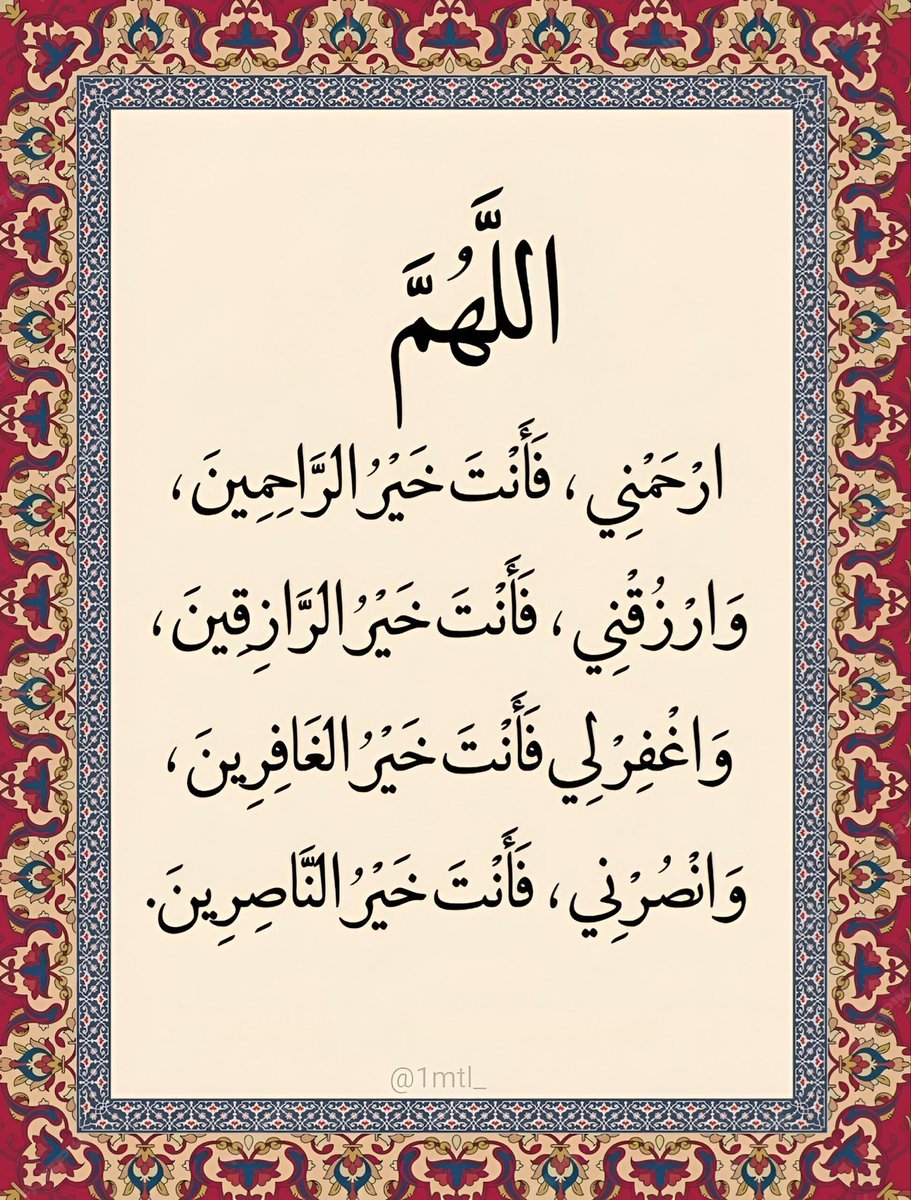 اللَّهُمَّ
ارْحَمْنِي ، فَأَنْتَ خَيْرُ الرَّاحِمِينَ ،
وَارْزُقْنِي ، فَأَنْتَ خَيْرُ الرَّازِقِينَ ،
وَاغْفِرْ لِي فَأَنْتَ خَيْرُ الغَافِرِينَ ،
وَانْصُرْنِي ، فَأَنْتَ خَيْرُ النَّاصِرِينَ.
@1mtl_